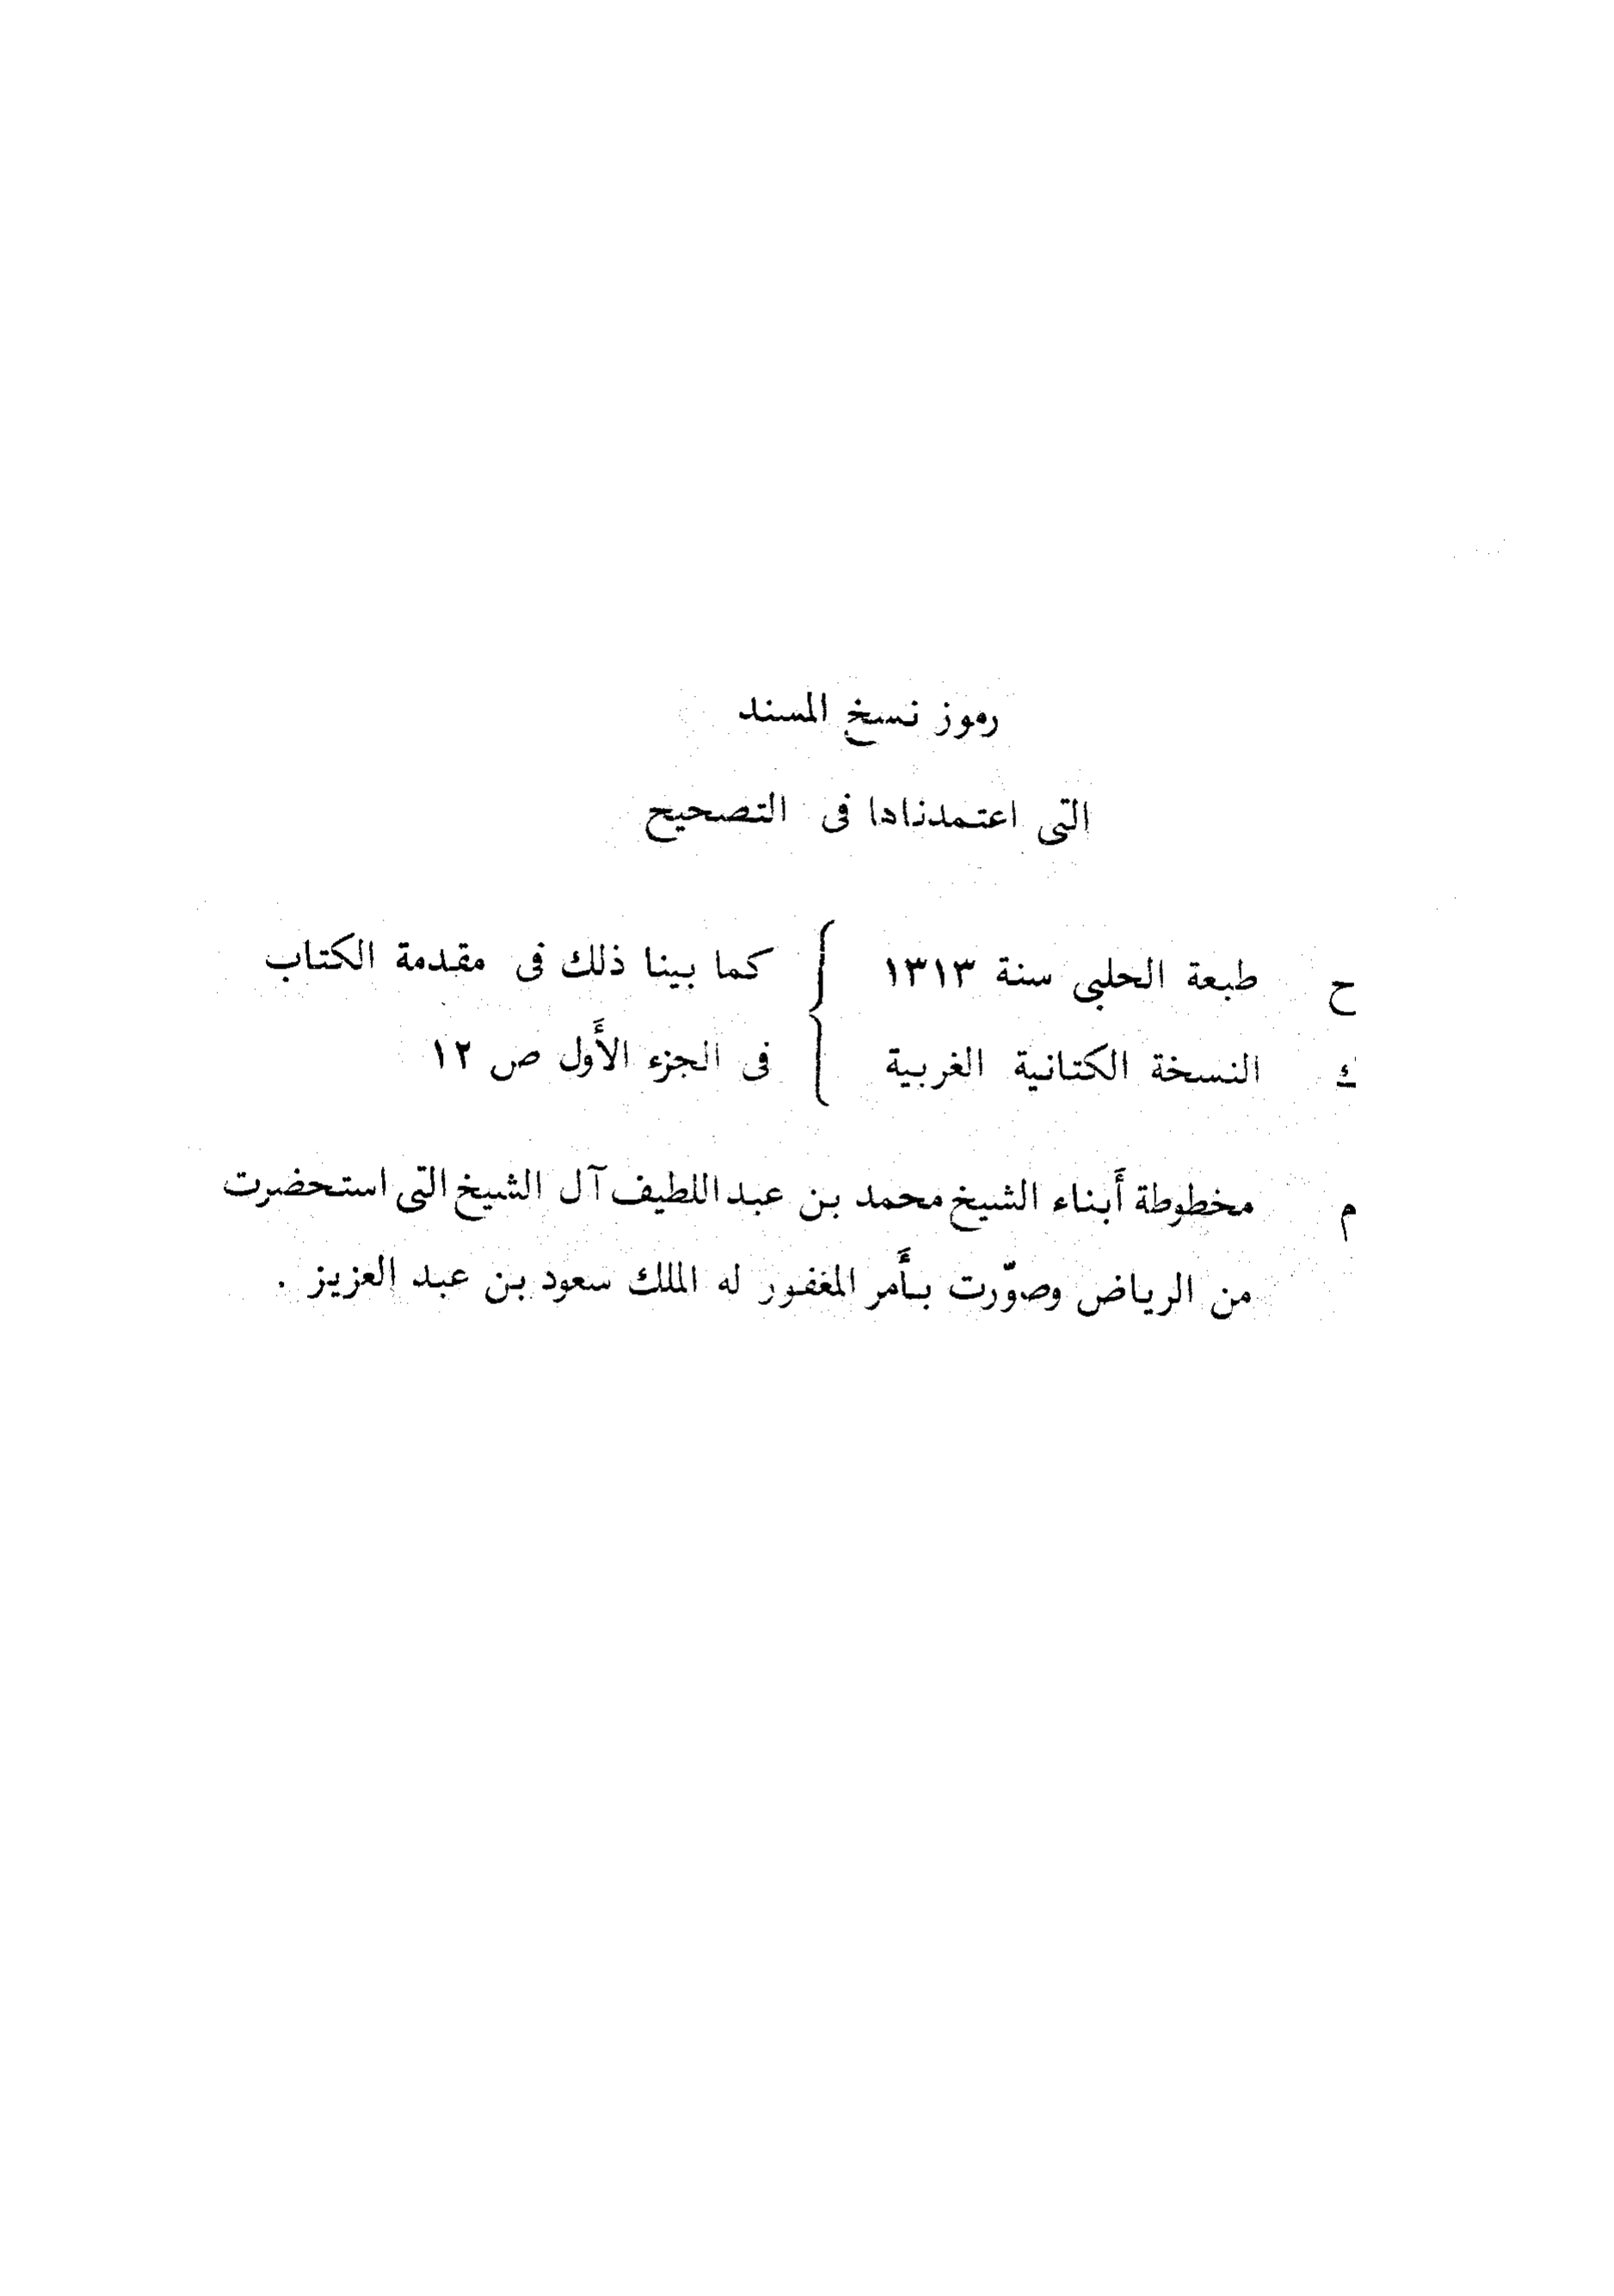 رموز نسخ المسند
التى اعتمدناها فى التصحيح
ح طبعة الحلبى سنة ١٣١٣ { كما بينا ذلك فى مقدمة الكتاب
ك النسخة الكتانية الغربية { فى الجزء الأَول ص ١٢
م مخطوطة أَبناء الشيخ محمد بن عبد اللطيف آل الشيخ التى استحضرت
من الرياض وصوّرت بأَمر المغفور له الملك سعود بن عبد العزيز .